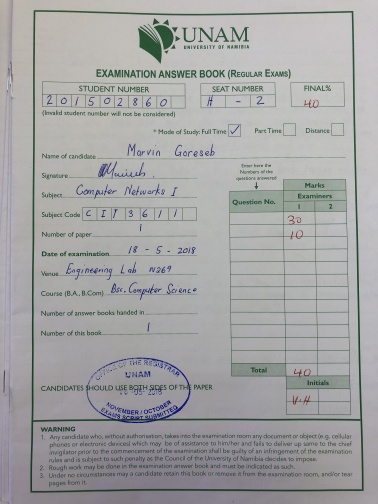 UNAM
UNIVERSITY OF NAMIBIA
EXAMINATION ANSWER BOOK (REGULAR EXAMS)
STUDENT NUMBER
201502860
(Invalid student number will not be considered)
SEAT NUMBER
H - 2
FINAL%
40
* Mode of Study: Full Time ✓ Part Time Distance
Name of candidate Marvin Goreseb
Signature
Subject Computer Networks I
Subject Code CIT3611
Number of paper 1
Date of examination 18 - 5 - 2018
Venue Engineering Lab
Course (B.A., B.Com) Bsc. Computer Science
Number of answer books handed in
Number of this book 1
Enter here the
Numbers of the
questions answered
Question No.
Marks
Examiners
1 2
30
10
Total 40
Initials
V.H
OFFICE OF THE REGISTRAR
UNAM
NOVEMBER / OCTOBER
EXAM SCRIPT SUBMITTED
CANDIDATES SHOULD USE BOTH SIDES OF THE PAPER
WARNING
1. Any candidate who, without authorisation, takes into the examination room any document or object (e.g. cellular
phones or electronic devices) which may be of assistance to him/her and fails to deliver up same to the chief
invigilator prior to the commencement of the examination shall be guilty of an infringement of the examination
rules and is subject to such penalty as the Council of the University of Namibia decides to impose.
2. Rough work may be done in the examination answer book and must be indicated as such.
3. Under no circumstances may a candidate retain this book or remove it from the examination room, and/or tear
pages from it.